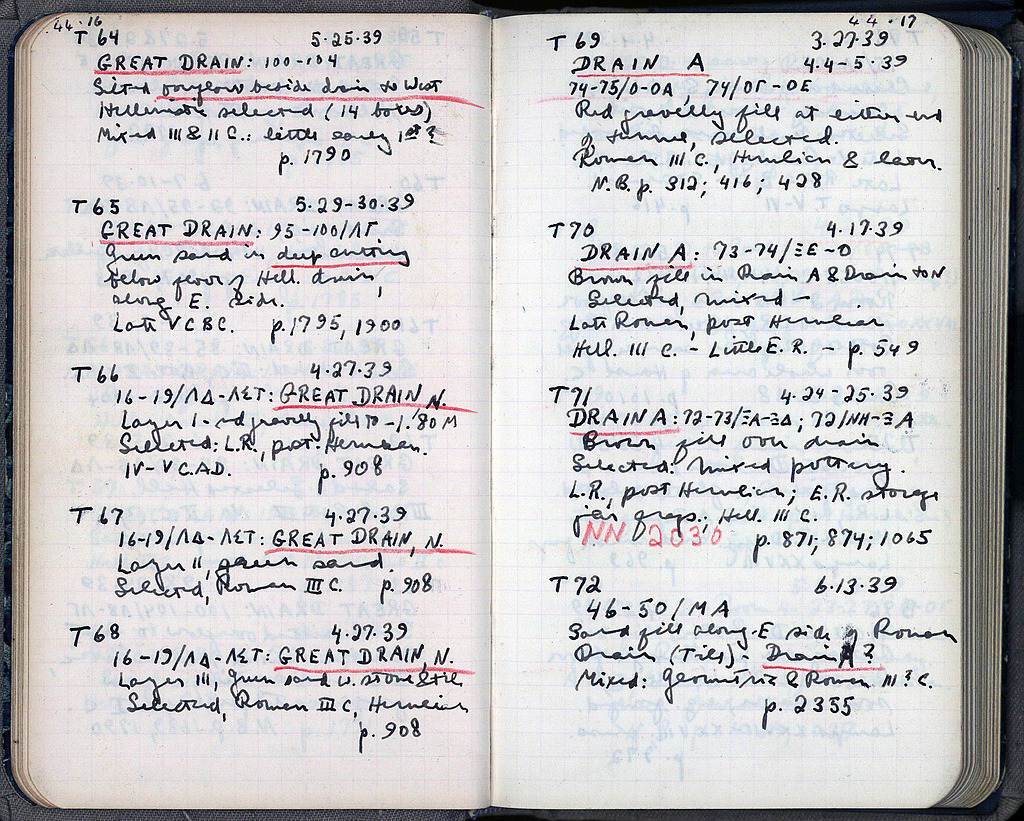 44.16
T 64 5.25.39
GREAT DRAIN: 100-104
Silted overflow beside drain to West
Hellenistic selected (14 boxes)
Mixed III & II C.: little early 1st ?
p. 1790
T 65 5.29-30.39
GREAT DRAIN: 95-100/ΛΓ
Green sand in deep cutting
below floor of Hell. drain,
along E. side.
Late V C BC. p. 1795, 1900
T 66 4.27.39
16-19/ΛΔ-ΛΣΤ: GREAT DRAIN, N.
Layer I - red gravelly fill to -1.80 M
Selected: L.R., post-Herulian.
IV-V C. A.D. p. 908
T 67 4.27.39
16-19/ΛΔ-ΛΣΤ: GREAT DRAIN, N.
Layer II, green sand,
Selected, Roman III C. p. 908
T 68 4.27.39
16-19/ΛΔ-ΛΣΤ: GREAT DRAIN, N.
Layer III, green sand w. stone & tile
Selected, Roman III C, Herulian
p. 908
44.17
T 69 3.27.39
DRAIN A 4.4-5.39
74-75/Ο-ΟΑ, 74/ΟΓ-ΟΕ
Red gravelly fill at either end
of tunnel, selected.
Roman III C., Herulian & later.
N.B. p. 312; 416; 428
T 70 4.17.39
DRAIN A: 73-74/ΞΕ-Ο
Brown fill in Drain A & Drain to N
Selected, mixed -
Late Roman, post Herulian
Hell. III C. - Little E.R. - p. 549
T 71 4-24-25.39
DRAIN A: 72-73/ΞΑ-ΞΔ; 72/ΝΗ-ΞΑ
Brown fill over drain
Selected: mixed pottery.
L.R., post Herulian; E.R. storage
jar frags.; Hell. III C.
NN 2030 p. 871; 874; 1065
T 72 6.13.39
46-50/ΜΑ
Sand fill along E side of Roman
Drain (Tile): Drain A ?
Mixed: Geometric & Roman III ? C.
p. 2355